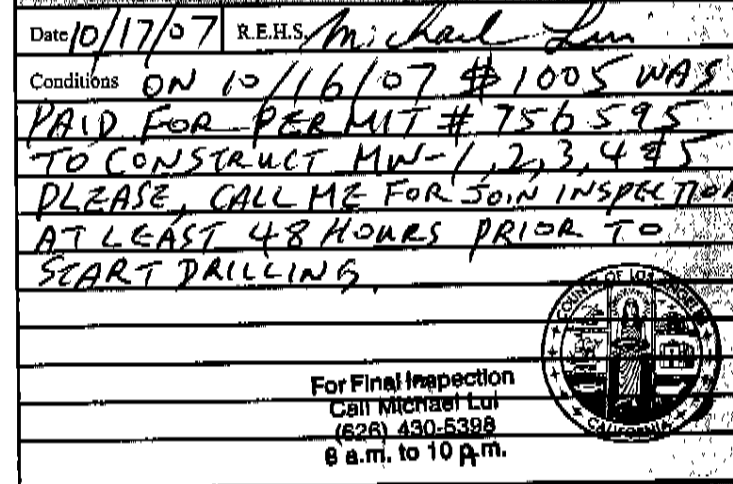 Date 10/17/07 R.E.H.S. Michael Lui
Conditions ON 10/16/07 $1005 WAS
PAID FOR PERMIT # 756595
TO CONSTRUCT MW-1,2,3,4 & 5
PLEASE, CALL ME FOR JOIN INSPECTION
AT LEAST 48 HOURS PRIOR TO
START DRILLING.
COUNTY OF LOS ANGELES
CALIFORNIA
For Final Inspection
Call Michael Lui
(626) 430-5398
8 a.m. to 10 a.m.